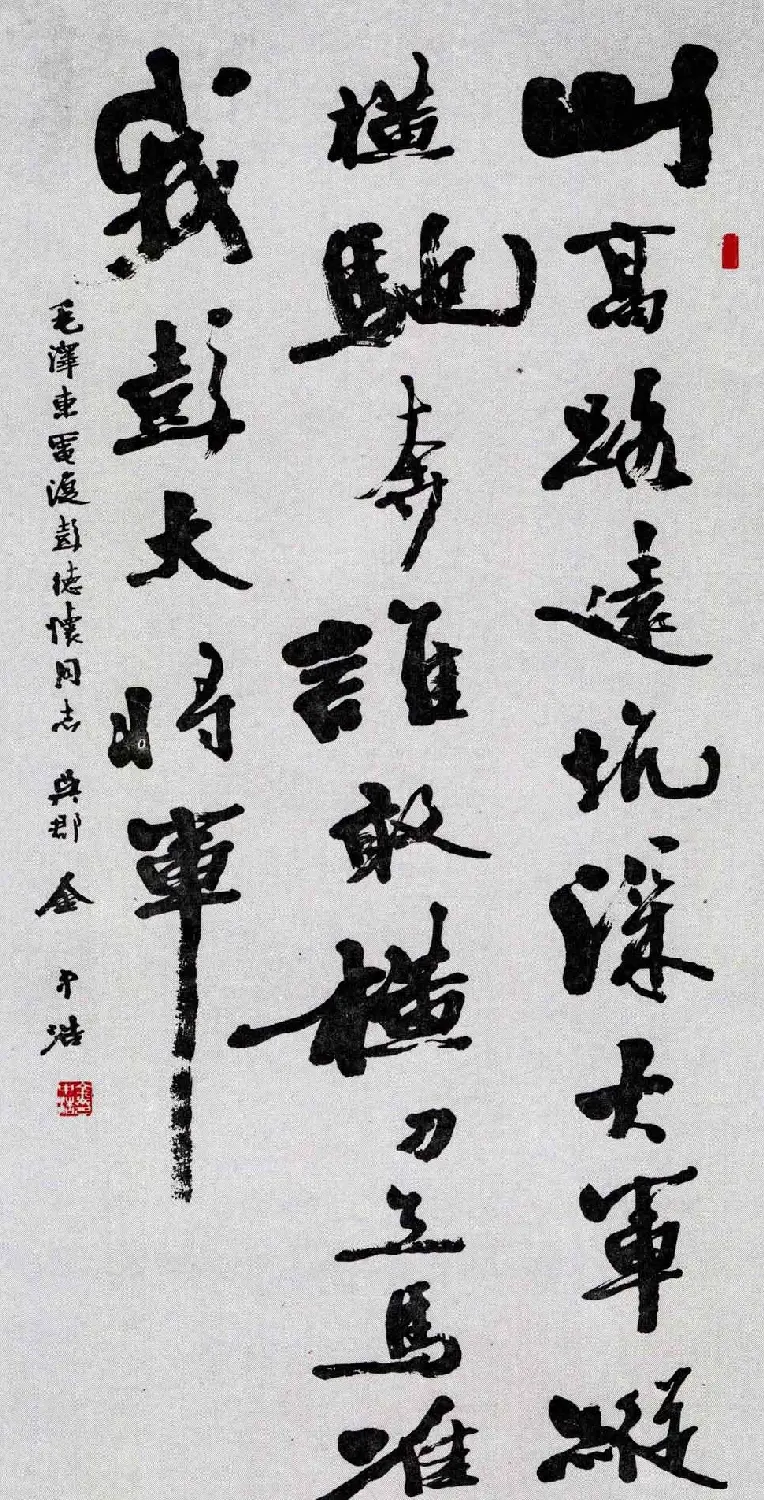 山高路遠坑深大軍縱
橫馳奔誰敢橫刀立馬唯
我彭大將軍
毛澤東電復彭德懷同志 吳郡 金中浩